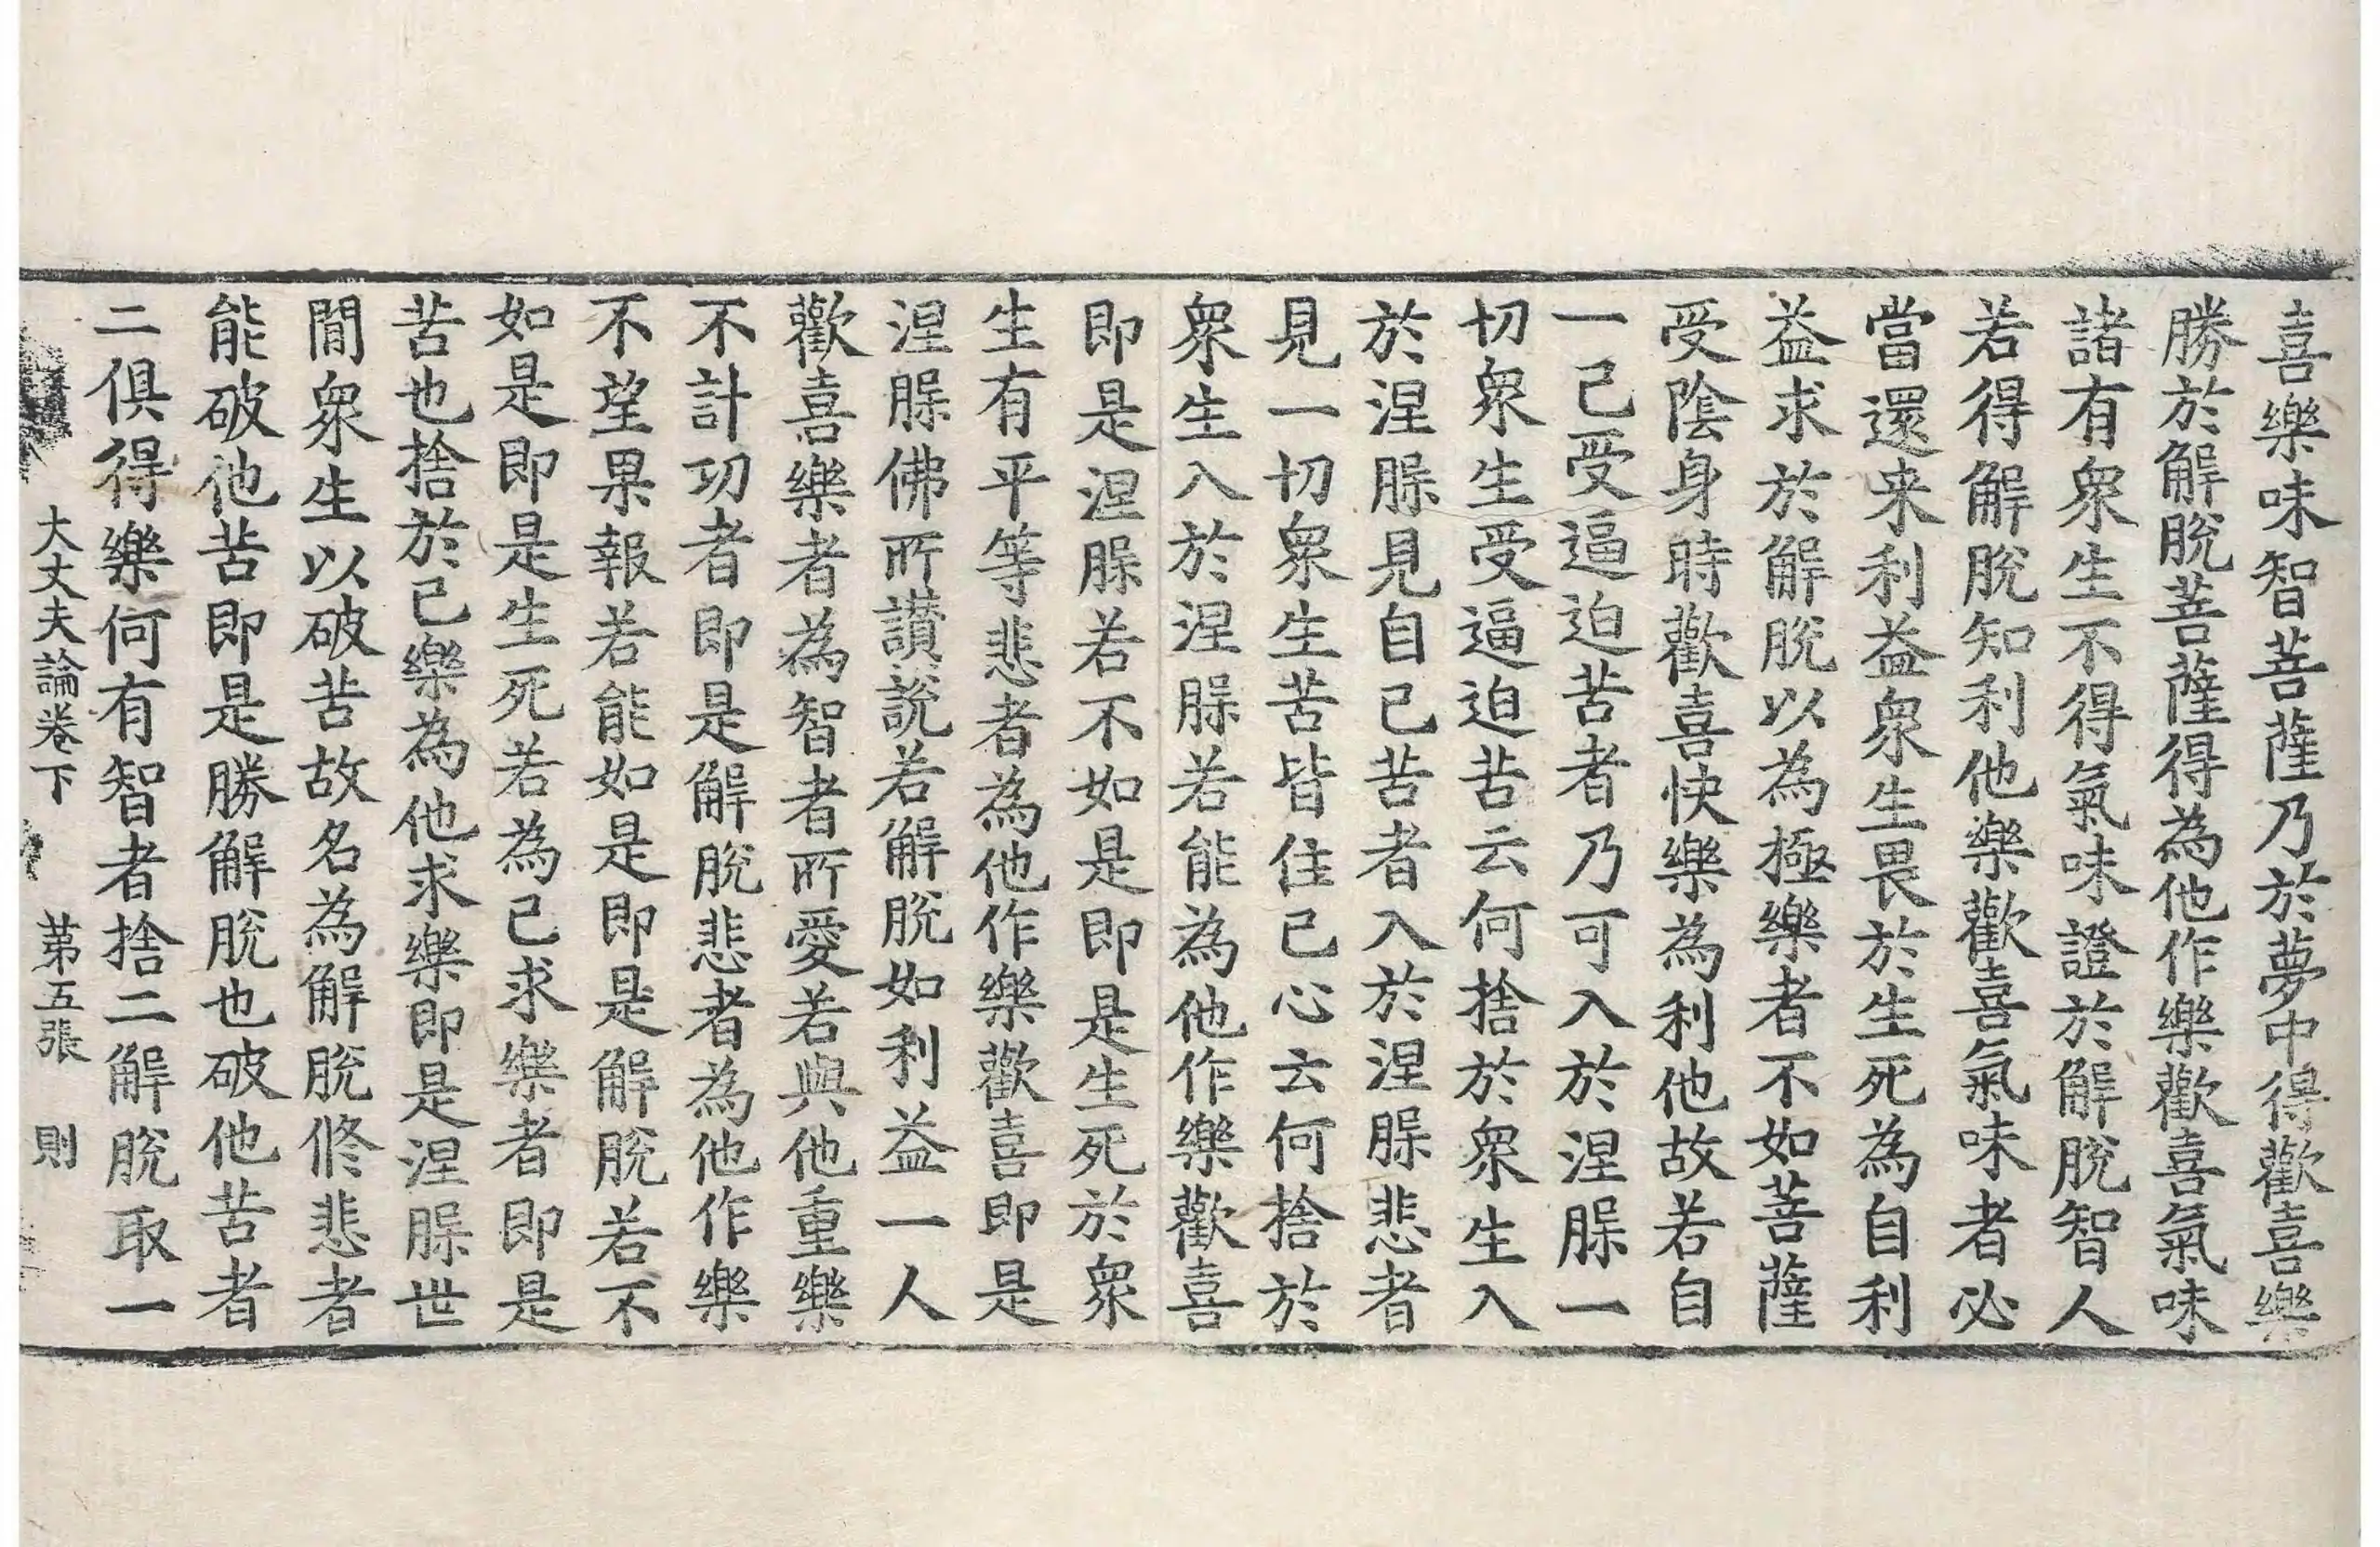 喜樂味智菩薩乃於夢中得歡喜樂
勝於解脫菩薩得為他作樂歡喜氣味
諸有眾生不得氣味證於解脫智人
若得解脫知利他樂歡喜氣味者必
當還来利益眾生畏於生死為自利
益求於解脫以為極樂者不如菩薩
受陰身時歡喜快樂為利他故若自
一己受逼迫苦者乃可入於涅𦙾一
切眾生受逼迫苦云何捨於眾生入
於涅𦙾見自己苦者入於涅𦙾悲者
見一切眾生苦皆住己心云何捨於
眾生入於涅𦙾若能為他作樂歡喜
即是涅𦙾若不如是即是生死於眾
生有平等悲者為他作樂歡喜即是
涅𦙾佛所讃說若解脫如利益一人
歡喜樂者為智者所愛若與他重樂
不計功者即是解脫悲者為他作樂
不望果報若能如是即是解脫若不
如是即是生死若為己求樂者即是
苦也捨於己樂為他求樂即是涅𦙾世
間眾生以破苦故名為解脫脩悲者
能破他苦即是勝解脫也破他苦者
二俱得樂何有智者捨二解脫取一
大丈夫論卷下 第五張 則